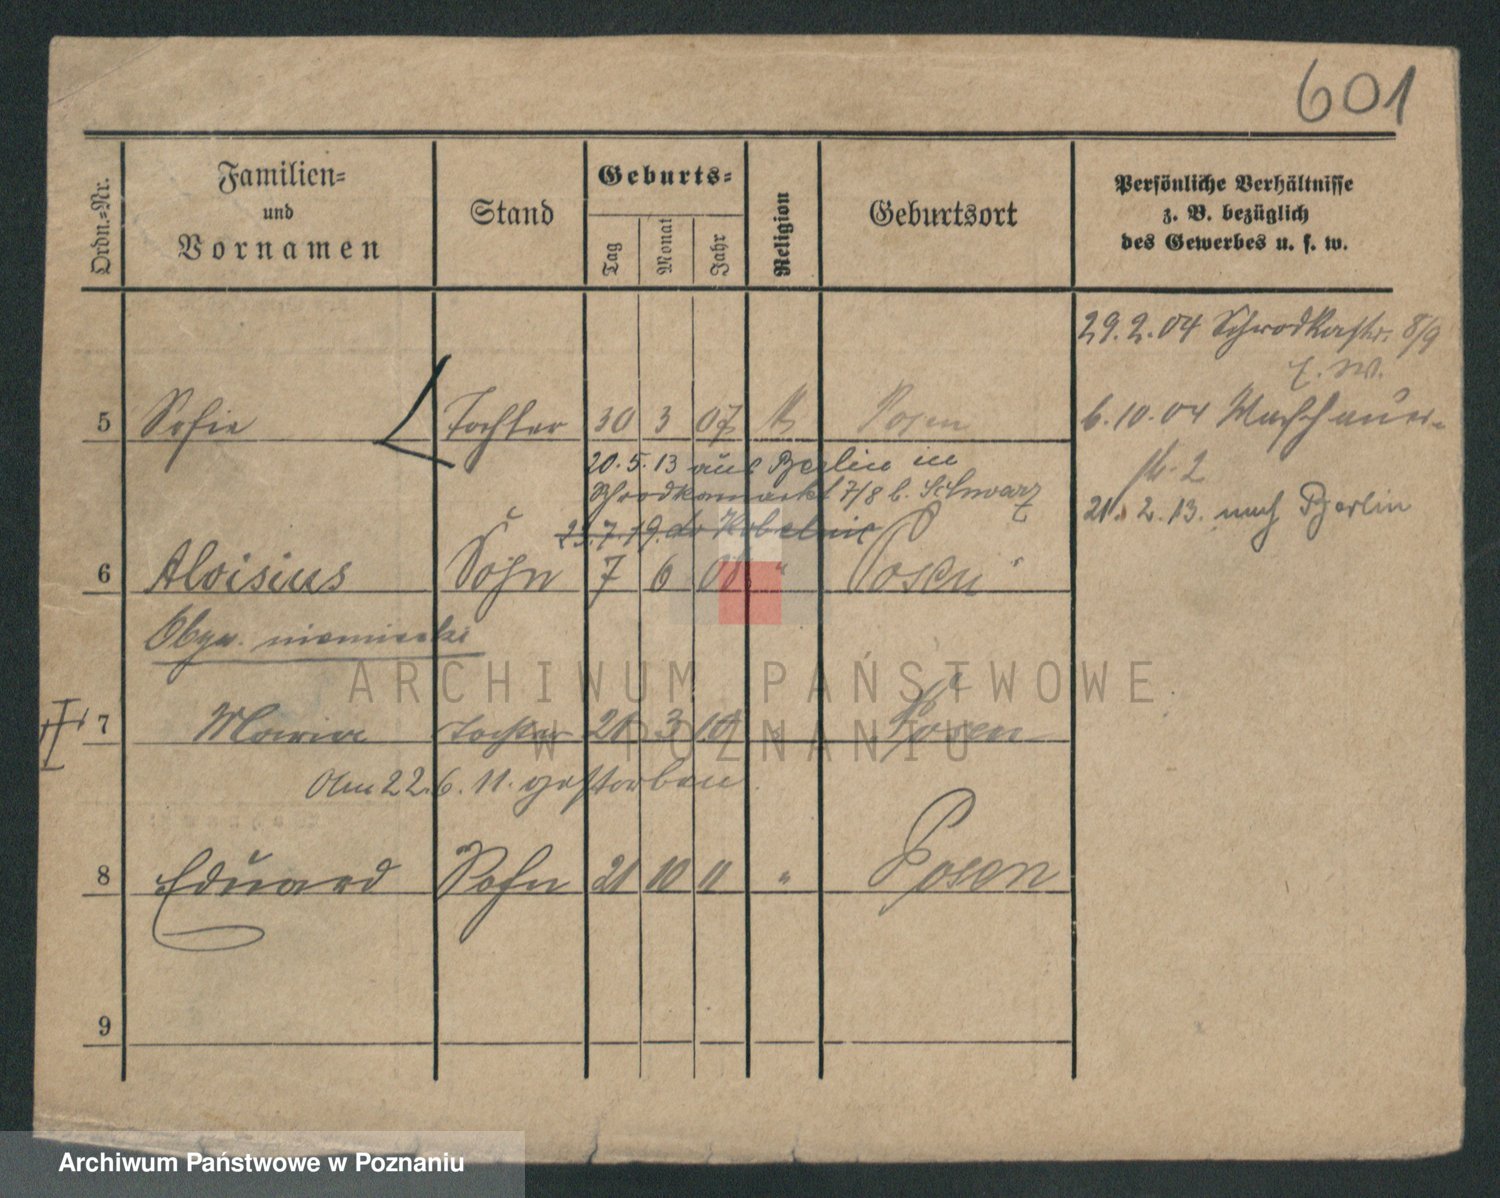 601
Ordn.-Nr.
Familien-
und
Vornamen
Stand
Geburts-
Tag
Monat
Jahr
Religion
Geburtsort
Persönliche Verhältnisse
z. B. bezüglich
des Gewerbes u. s. w.
29.2.04 Schrodkastr. 8/9
5 Sofie Tochter 30 3 07 Posen
6.10.04 Wallischauer-
str. 2
21.2.13. nach Berlin
20.5.13 aus Berlin in
Schrodkamarkt 7/8 b. Schwarz
23.7.19. do Kobelnic
6 Aloisius Sohn 7 6 " Posen
Obyw. niemiecki
7 Maria Tochter 21 3 10 " Posen
Am 22.6.11. gestorben
8 Eduard Sohn 21 10 11 " Posen
9
ARCHIWUM PAŃSTWOWE
W POZNANIU
Archiwum Państwowe w Poznaniu